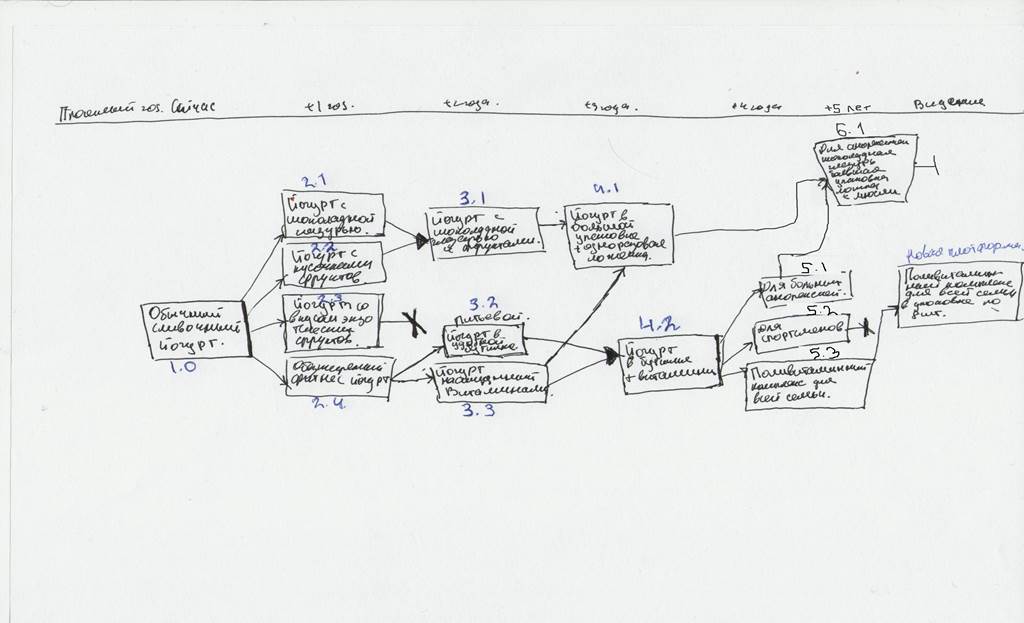 Прошлый год. Сейчас +1 год. +2 года. +3 года. +4 года +5 лет Видение
2.1
Йогурт с
шоколадной
глазурью.
2.2
Йогурт с
кусочками
фруктов
2.3
Йогурт со
вкусом экзо
тических
фруктов.
Обезжиренный
фитнес йогурт
2.4
Обычный
сливочный
йогурт.
1.0
3.1
Йогурт с
шоколадной
глазурью
и фруктами.
3.2
Питьевой.
Йогурт в
удобной
бутылке
Йогурт
насыщенный
Витаминами
3.3
4.1
Йогурт в
большой
упаковке
+ одноразовая
ложечка.
4.2
Йогурт
в бутылке
+ витамины
5.1
Для больных
анорексией.
5.2
Для
спортсменов
5.3
Поливитаминный
комплекс для
всей семьи.
6.1
Для
шоколадная
глазурь
большая
упаковка
ложка
с мюсли
Новая платформа.
Поливитамин-
ный комплекс
для всей семьи
в упаковке по
шт.